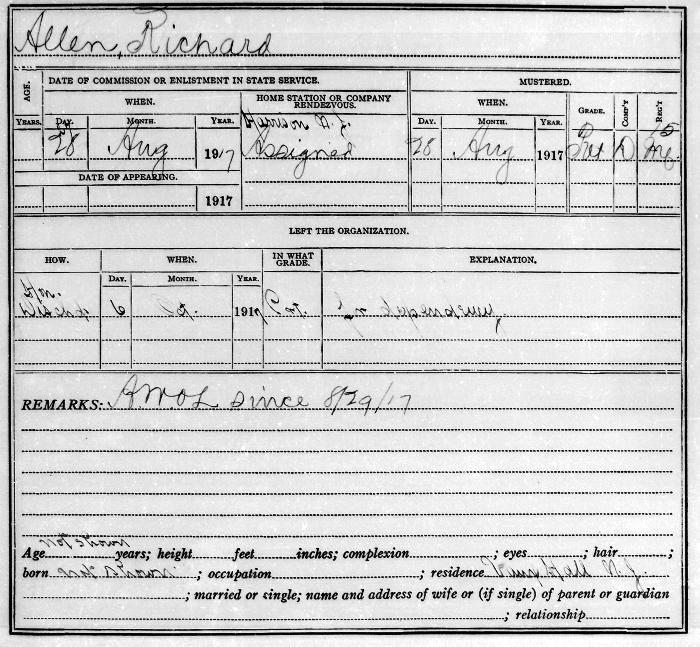 Allen, Richard
AGE. DATE OF COMMISSION OR ENLISTMENT IN STATE SERVICE. MUSTERED.
WHEN. HOME STATION OR COMPANY RENDEZVOUS. WHEN. GRADE. COMP'Y REG'T
YEARS. DAY. MONTH. YEAR. N. J. DAY. MONTH. YEAR.
28 Aug 1917 Assigned 28 Aug 1917 Pvt D
DATE OF APPEARING.
1917
LEFT THE ORGANIZATION.
HOW. WHEN. IN WHAT GRADE. EXPLANATION.
DAY. MONTH. YEAR.
Hon.
6 191
REMARKS: A.W.O.L since 8/29/17
not shown
Age years; height feet inches; complexion ; eyes ; hair ;
born not shown ; occupation ; residence N. J.
; married or single; name and address of wife or (if single) of parent or guardian
; relationship